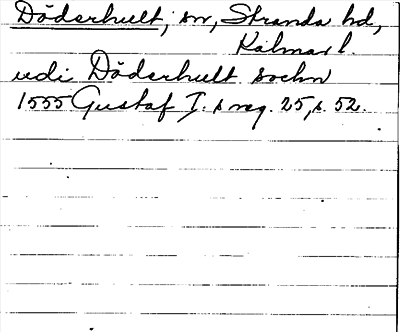 Döderhult, sn, Stranda hd,
Kalmar l.
udi Döderhult sochn
1555 Gustaf I. s reg. 25, s. 52.